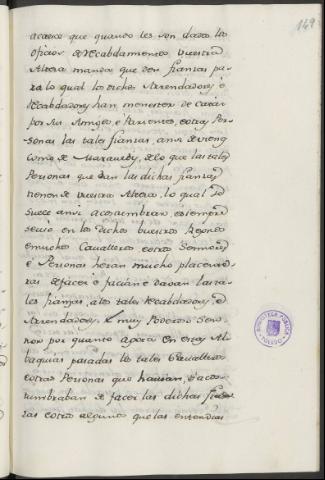 149
acaece que quando les son dados los
oficios de recabdamiento vuestra
Alteza manda que den fianzas pa-
ra lo qual los dichos Arrendadores é
recabdadores han menester de catar
por sus Amigos é Parientes, é otras Per-
sonas las tales fianzas, ansi de
como de Maravedis, de lo que las tales
Personas que dan las dichas fianzas
tienen de vuestra Alteza. lo qual
suele ansi acostumbrar, é siempre
se uso en los dichos vuestros Regnos
é muchos Cavalleros é otros
é Personas heran mucho placente-
ras de facer é facian é daban las ta-
les fianzas, á los tales recabdadores, é
Arrendadores. E muy Poderoso Sen-
nor por quanto agora en estas Al-
baquias pasadas los tales Cavalleros
é otras Personas que havian, é acos-
tumbraban de facer las dichas fian-
zas é otros algunos que las entendias
BIBLIOTECA PUBLICA
TOLEDO